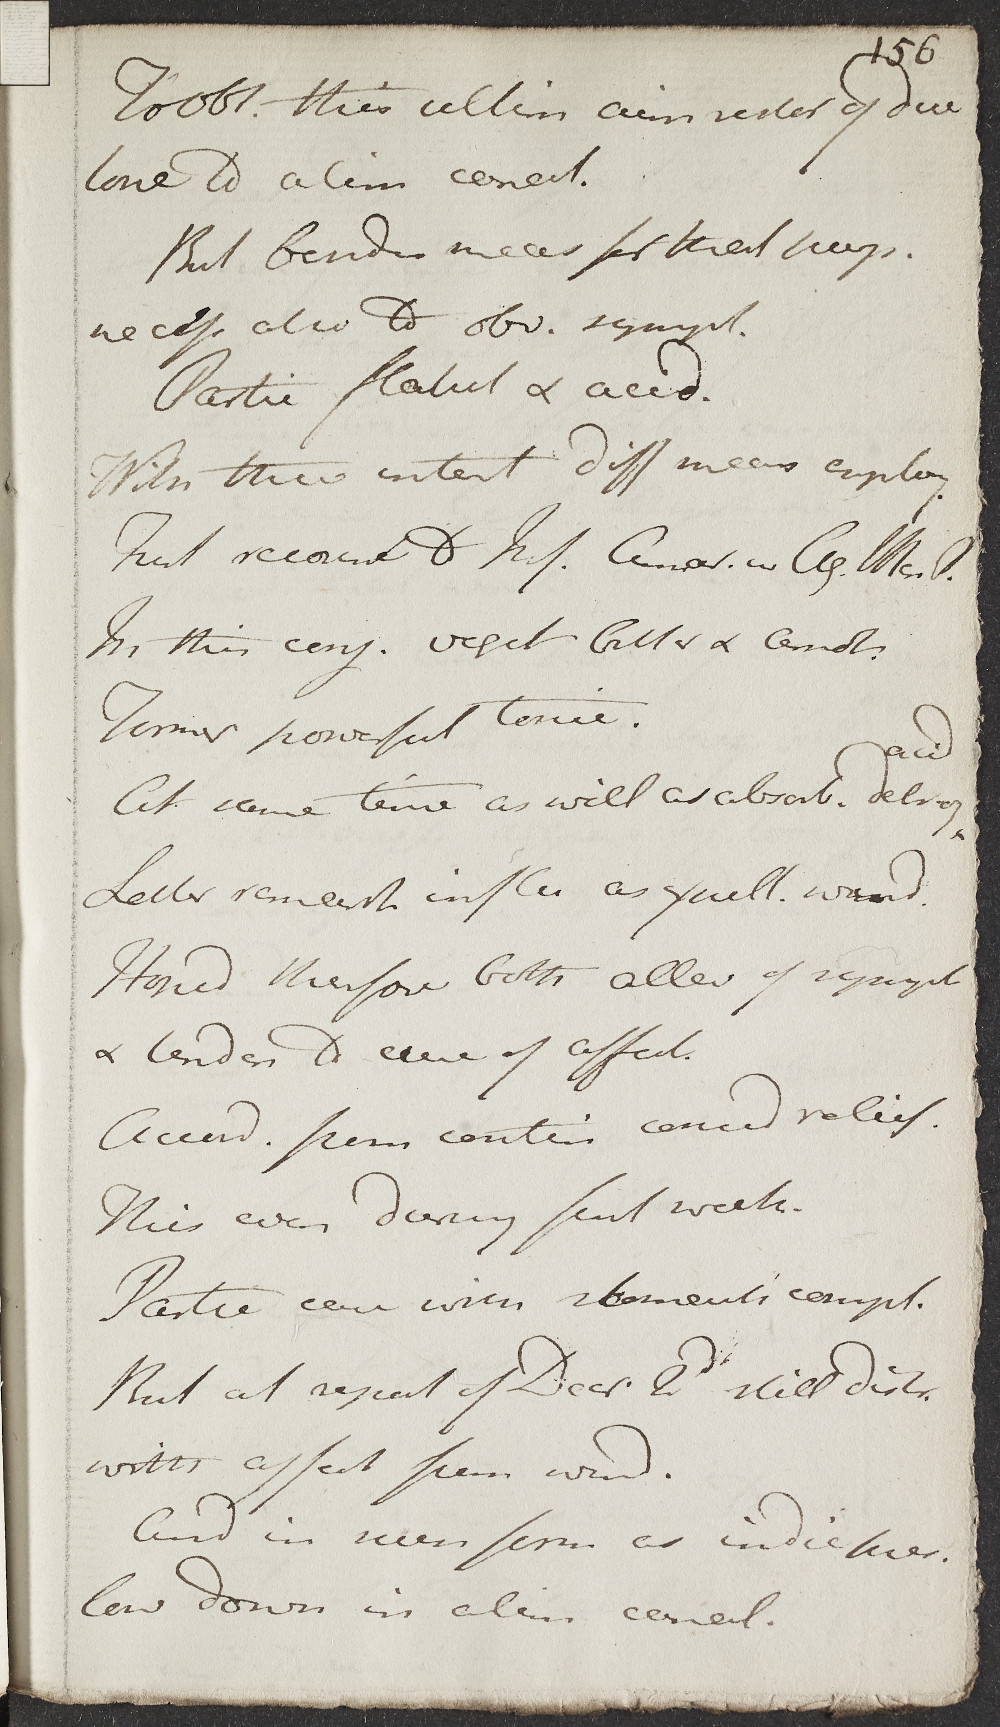 156
To obt. this ultim aim restor of due
tone to alim canal.
But besides means for that purp.
necess also to obv. sympt.
Partic flatul & acid.
With these intent diff means employ.
First recourse to Inf. Amar. w Aq.
In this conj. veget bitter &
Former powerful tonic.
acid
At same time as will as absorb. delroy
Latter remark influ as expell. wind.
Hoped therfore both allev of sympt
& tenden to cure of affect.
Accord. from contin consid relief.
This even during first week.
Partic can with stomach compl.
But at report of Decr. 2d still distr.
with affect from wind.
And in new form as indic pres.
low down in alim canal.